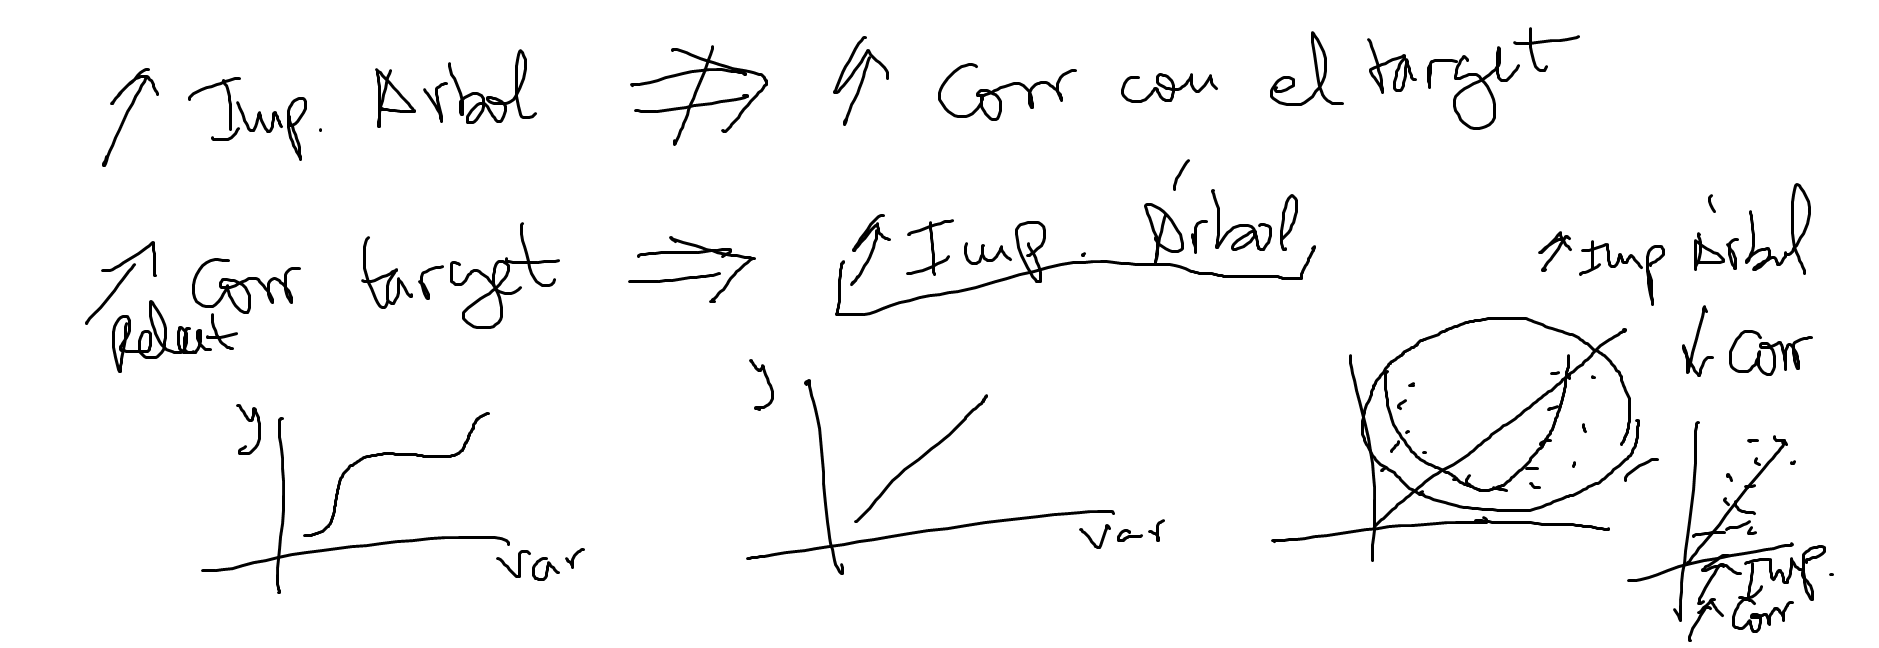 ↑ Imp. Arbol ⇏ ↑ Corr con el target
↑ Corr target ⇒ ↑ Imp. Árbol
↑ Imp Árbol
↓ Corr
y
var
y
var
↑ Imp.
↑ Corr